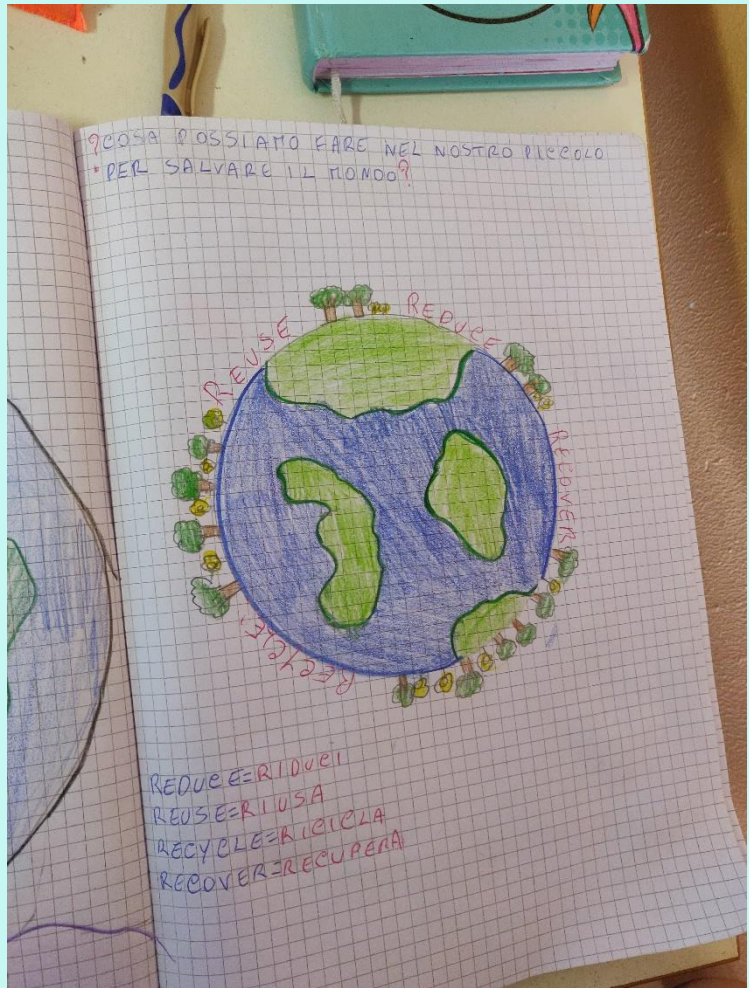 ?COSA POSSIAMO FARE NEL NOSTRO PICCOLO
PER SALVARE IL MONDO?
REUSE
REDUCE
RECOVER
RECYCLE
REDUCE=RIDUCI
REUSE=RIUSA
RECYCLE=RICICLA
RECOVER=RECUPERA